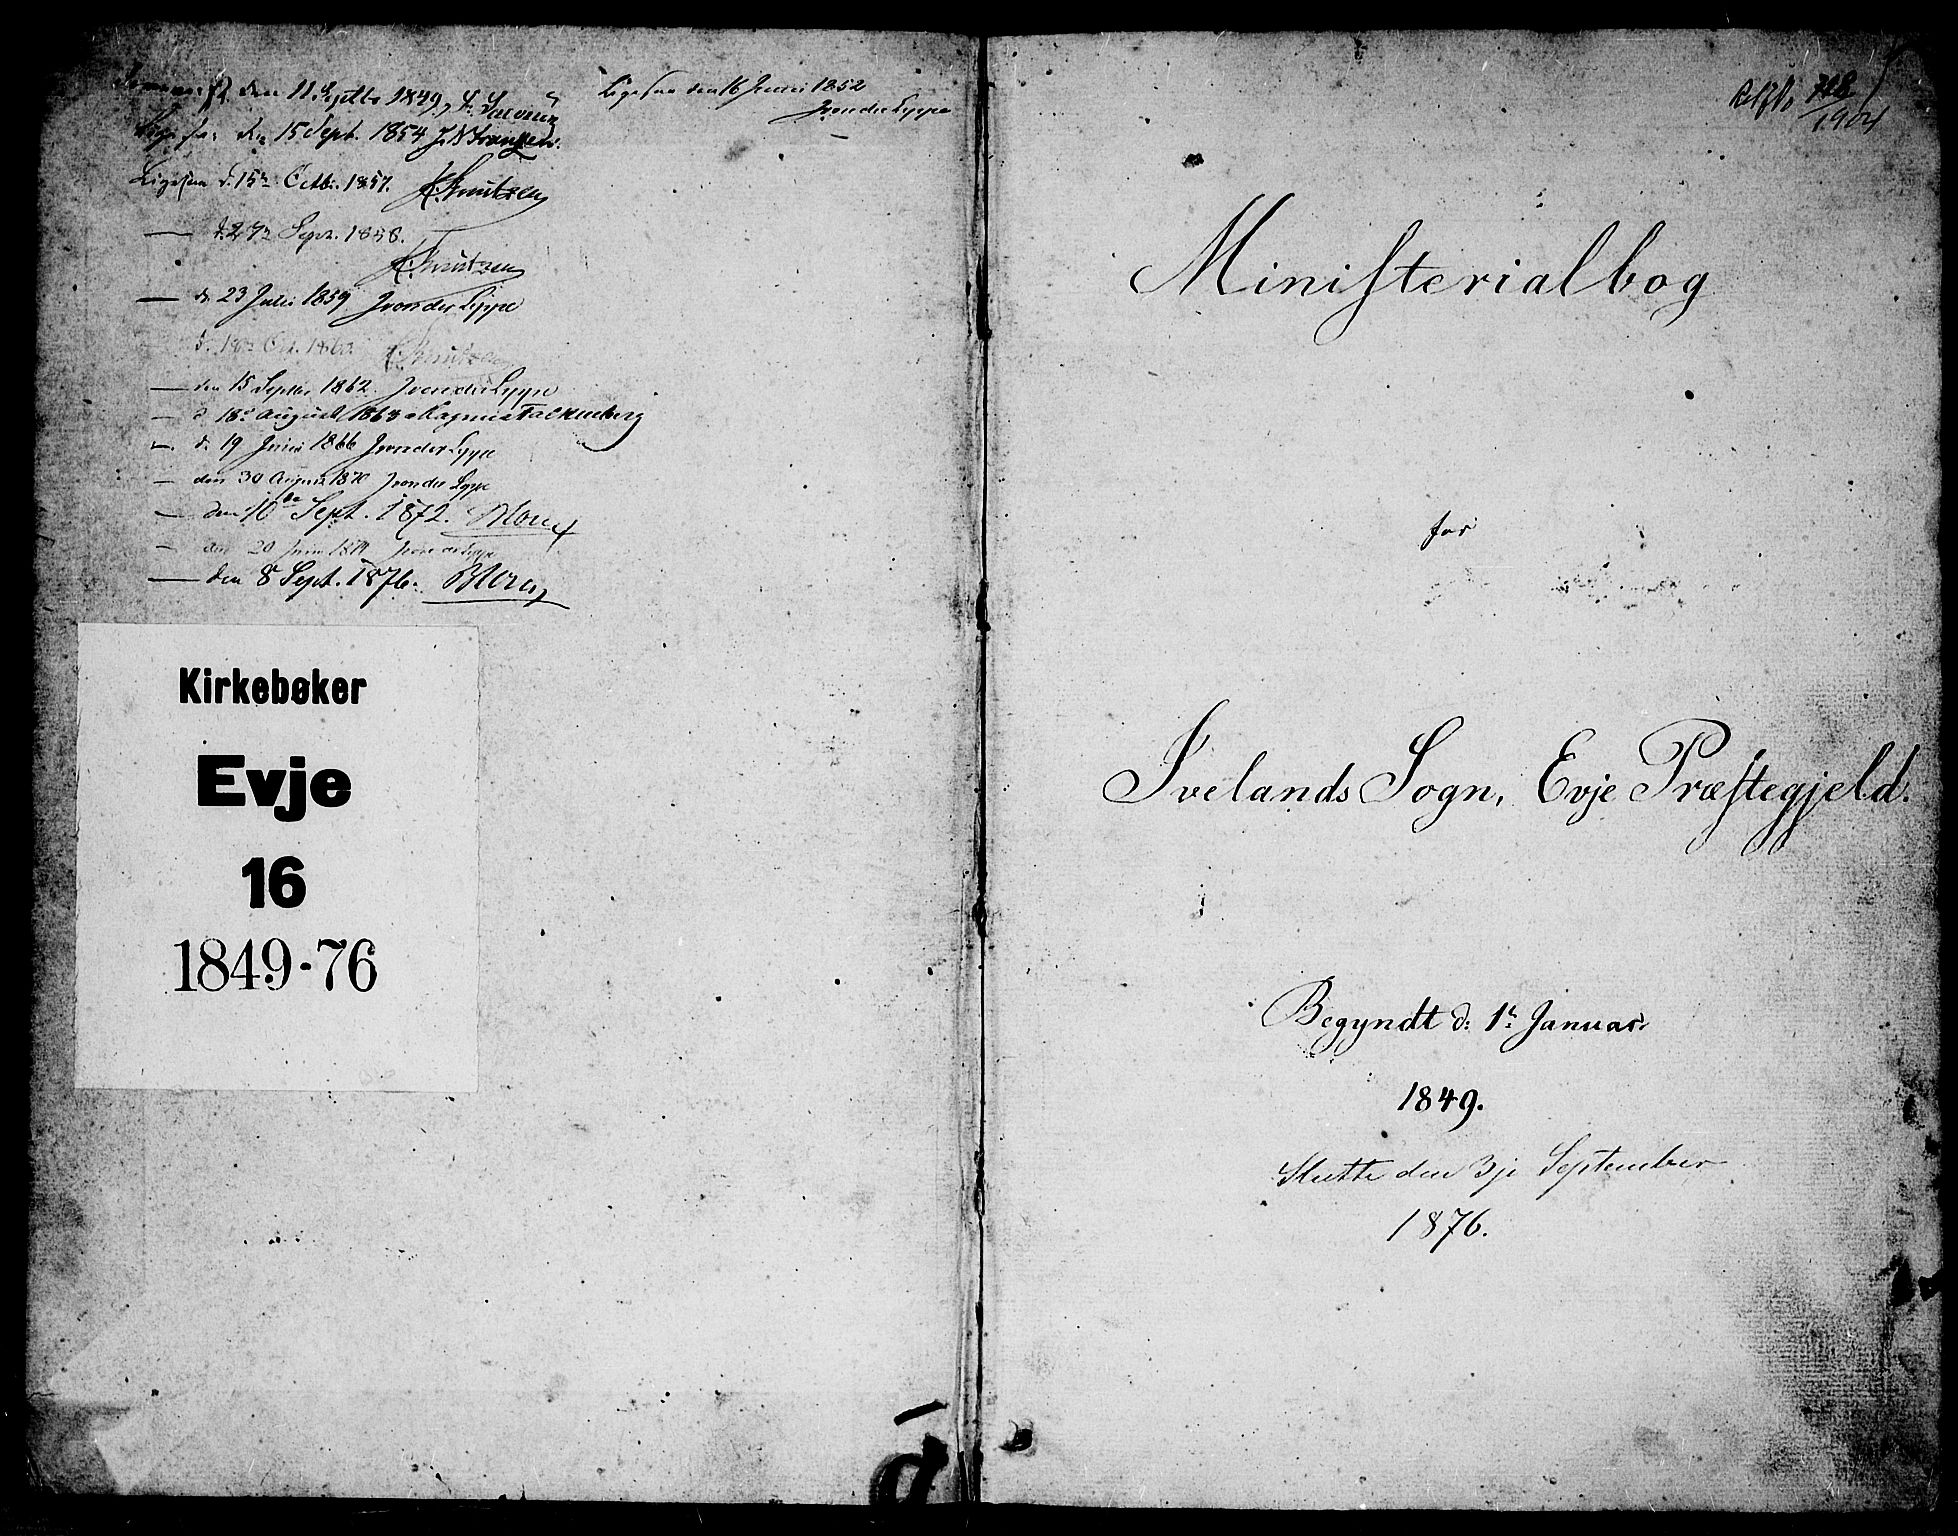 den 11 Septbr 1849,
Ligesaa den 15 Sept. 1854
Ligesaa d. 15de Octb. 1857. Knutzen
— d. 27de Sept. 1858.
Knutzen
— d. 23 Juli 1859 JvonderLippe
d. Oct. 1860. Knutzen
— den 15 Septbr 1862. JvonderLippe
— d 18de August 1864
— d. 19 Juni 1866 JvonderLippe
— den 30 August 1870 JvonderLippe
— den 10de Sept. 1872.
— den 20 Juni JvonderLippe
— den 8 Sept. 1876.
Ligesaa den 16 Juni 1852
JvonderLippe
Kirkebøker
Evje
16
1849-76
718
1904
Ministerialbog
for
Ivelands Sogn, Evje Præstegjeld.
Begyndt d: 1te Januar
1849.
Slutte den 3je September
1876.